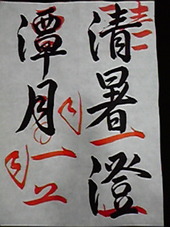 清暑澄
潭月